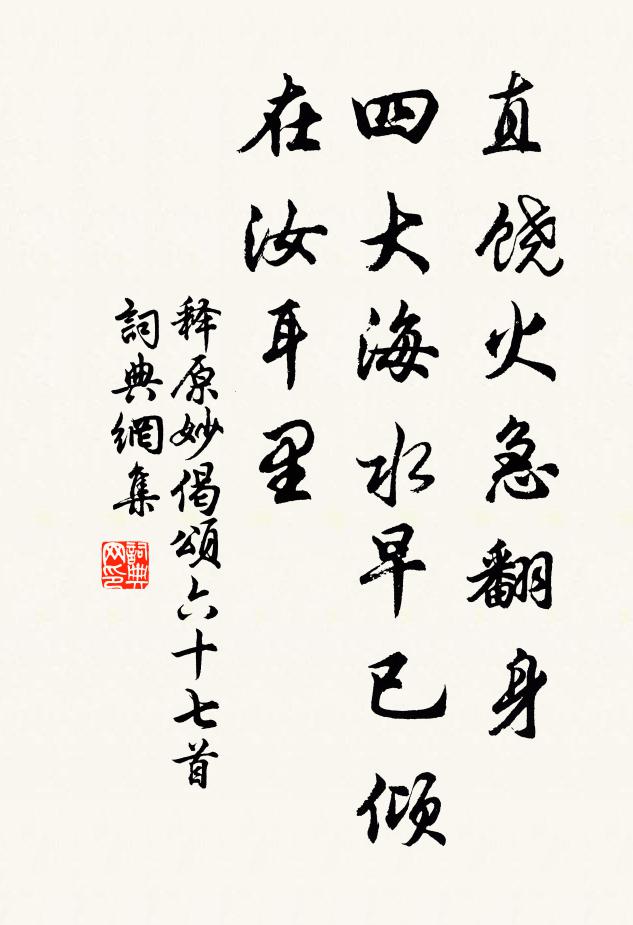 直饶火急翻身
四大海水早已倾
在汝耳里
释原妙偈頌六十七首
詞典網集
詞典网印